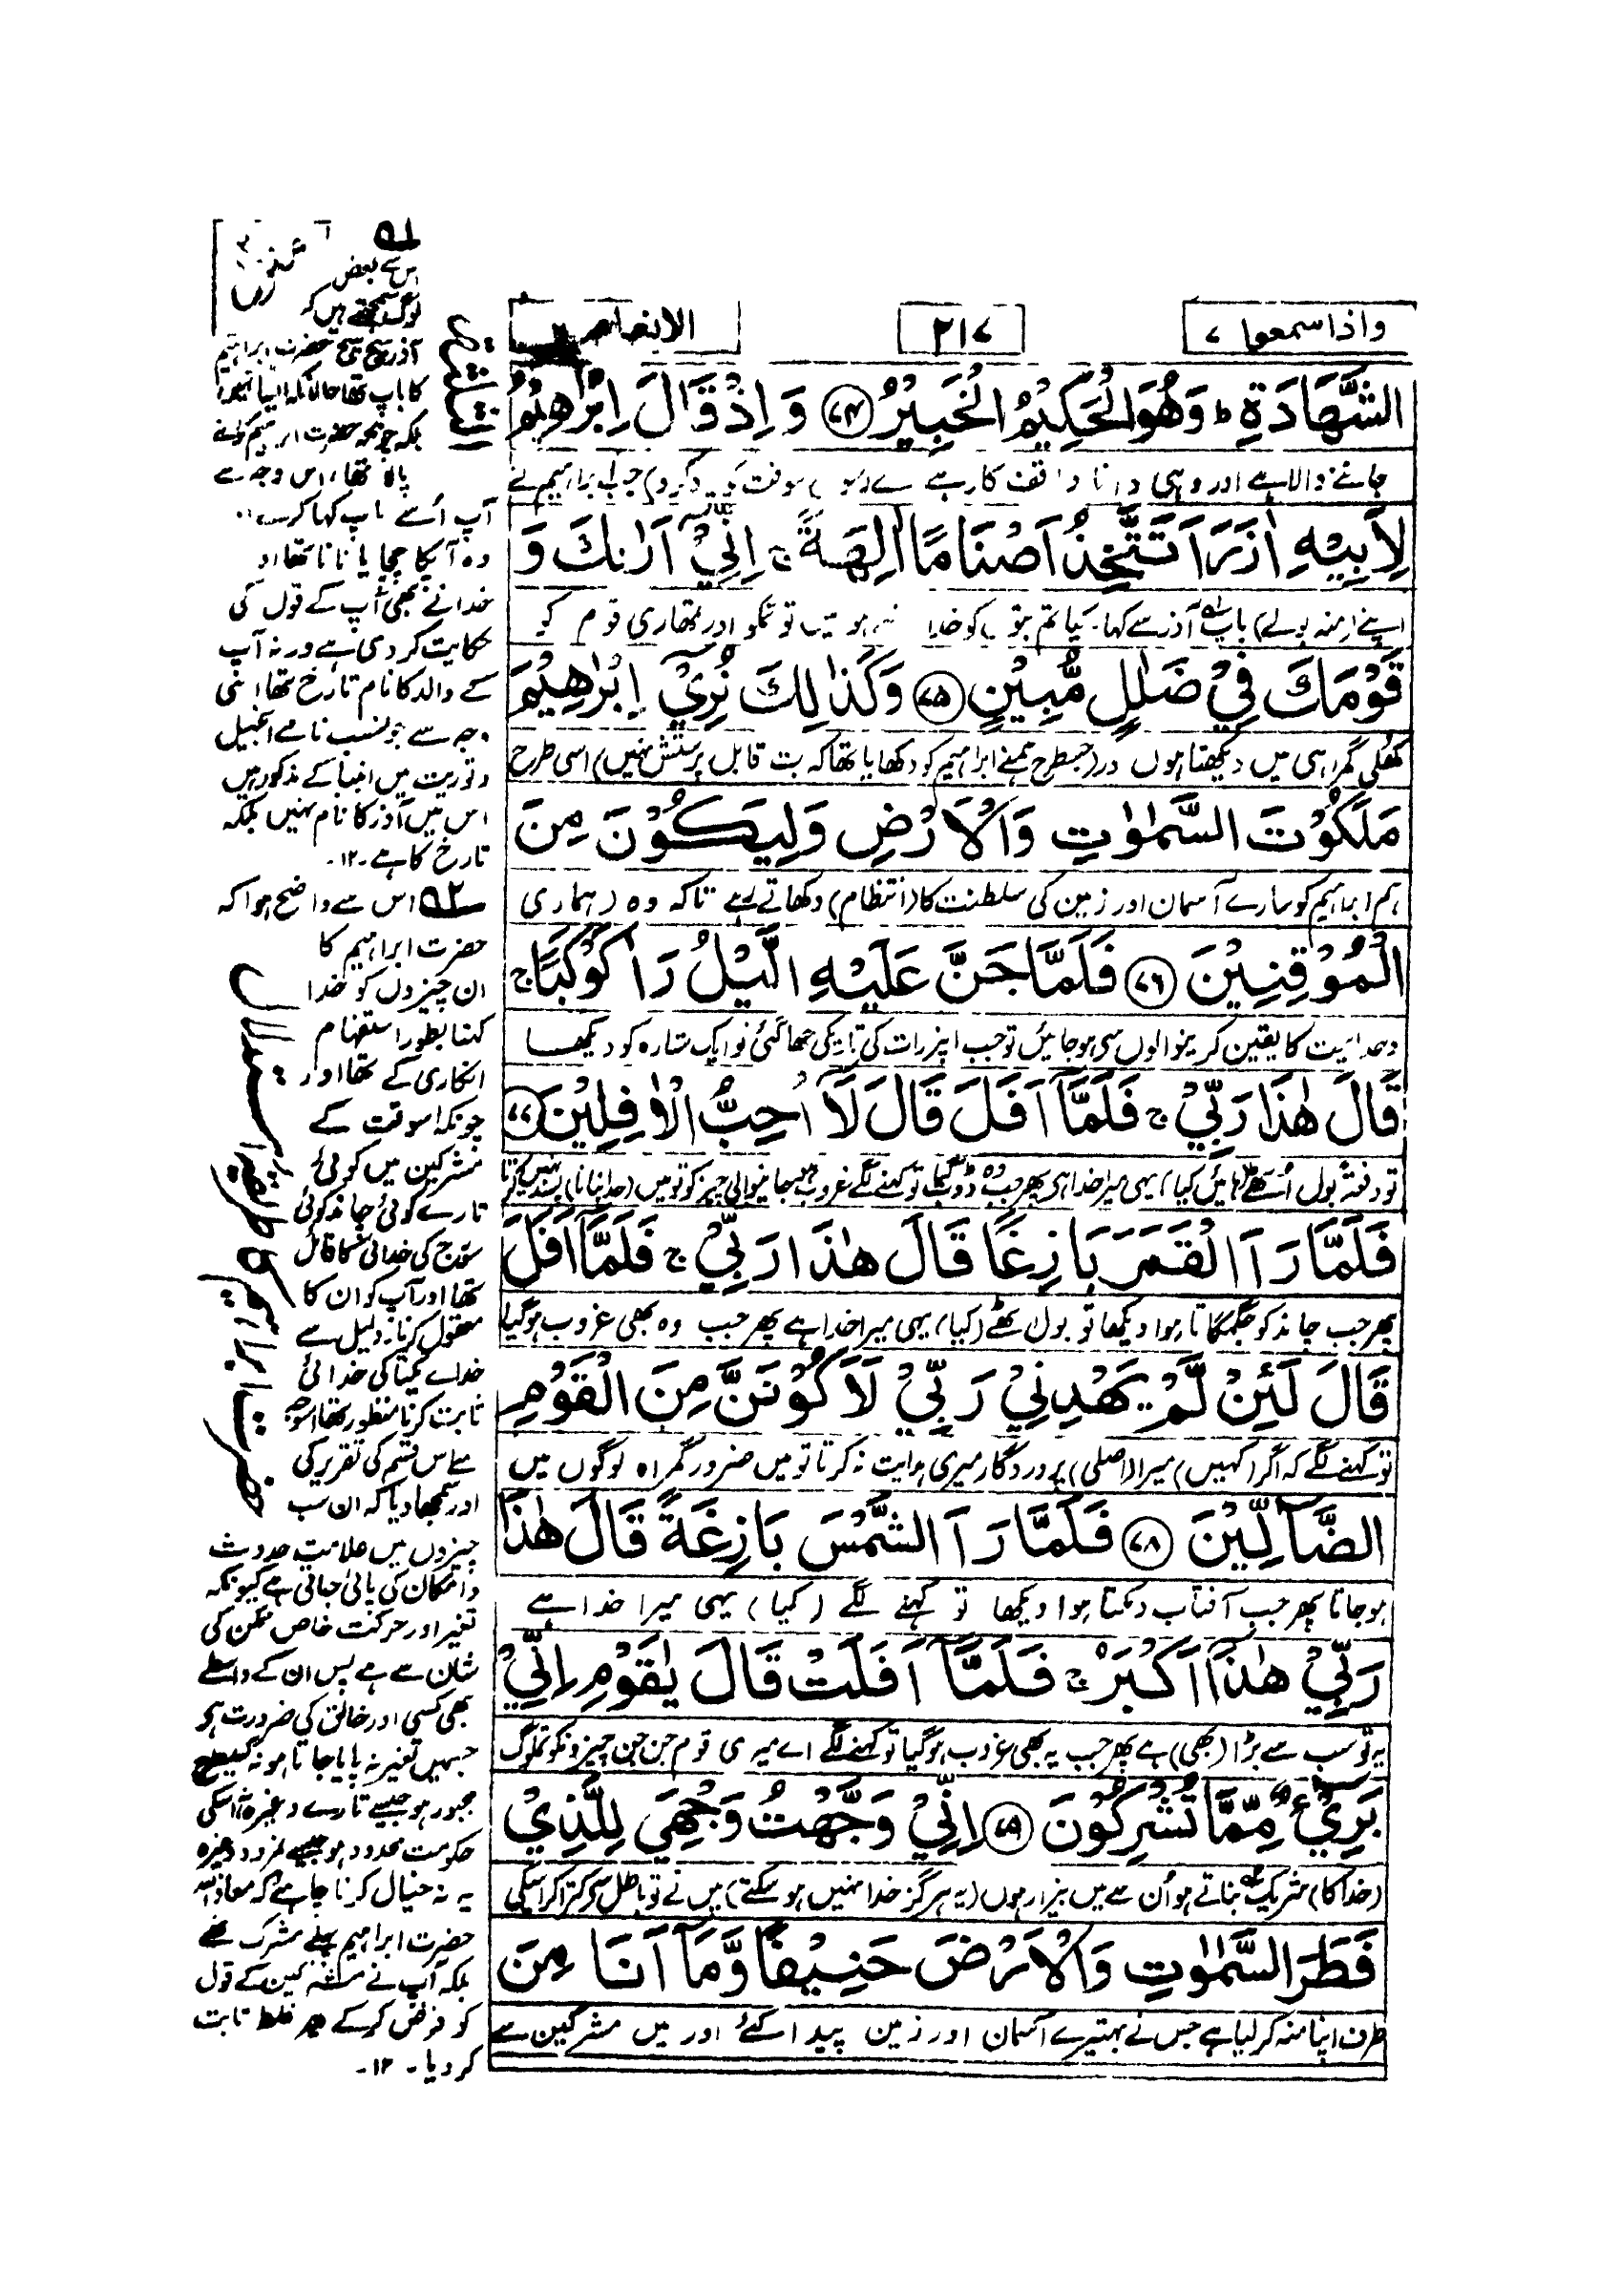 واذا سمعوا ۷
۲۱۷
الانعام
الشَّهَادَةِ ؕ وَهُوَ الْحَكِيْمُ الْخَبِيْرُ ﴿۷۴﴾ وَ اِذْ قَالَ اِبْرٰهِيْمُ
جاننے والا ہے اور وہی دانا واقف کار ہے جب ابراہیم نے
لِاَبِيْهِ اٰزَرَ اَتَتَّخِذُ اَصْنَامًا اٰلِهَةً ۚ اِنِّيْۤ اَرٰىكَ وَ
اپنے (منہ بولے) باپ آذر سے کہا۔ کیا تم بتوں کو خدا میں تو تمکو اور تمھاری قوم کو
قَوْمَكَ فِيْ ضَلٰلٍ مُّبِيْنٍ ﴿۷۵﴾ وَكَذٰلِكَ نُرِيْۤ اِبْرٰهِيْمَ
کھلی گمراہی میں دیکھتا ہوں اور (جسطرح ہمنے ابراہیم کو دکھایا تھا کہ بت قابل پرستش نہیں) اسی طرح
مَلَكُوْتَ السَّمٰوٰتِ وَالْاَرْضِ وَلِيَكُوْنَ مِنَ
ہم ابراہیم کو سارے آسمان اور زمین کی سلطنت کا (انتظام) دکھاتے رہے تاکہ وہ (ہماری
الْمُوْقِنِيْنَ ﴿۷۶﴾ فَلَمَّا جَنَّ عَلَيْهِ الَّيْلُ رَاٰ كَوْكَبًا ۚ
وحدانیت کا یقین کرنیوالوں سے ہو جائیں تو جب اپنر رات کی تاریکی چھا گئی تو ایک ستارہ کو دیکھا
قَالَ هٰذَا رَبِّيْ ۚ فَلَمَّاۤ اَفَلَ قَالَ لَاۤ اُحِبُّ الْاٰفِلِيْنَ ﴿۷۷﴾
تو دفعتہً بول اُٹھے (ہائیں کیا) یہی میرا خدا ہی پھر جب وہ ڈوب گیا تو کہنے لگے غروب ہو جانیوالی چیز کو تو میں (خدا بنانا) پسند نہیں کرتا
فَلَمَّا رَاَ الْقَمَرَ بَازِغًا قَالَ هٰذَا رَبِّيْ ۚ فَلَمَّاۤ اَفَلَ
پھر جب چاند کو جگمگاتا ہوا دیکھا تو بول اٹھے (کیا) یہی میرا خدا ہے پھر جب وہ بھی غروب ہو گیا
قَالَ لَئِنْ لَّمْ يَهْدِنِيْ رَبِّيْ لَاَكُوْنَنَّ مِنَ الْقَوْمِ
تو کہنے لگے کہ اگر (کہیں) میرا (اصلی) پروردگار میری ہدایت نہ کرتا تو میں ضرور گمراہ لوگوں میں
الضَّآلِّيْنَ ﴿۷۸﴾ فَلَمَّا رَاَ الشَّمْسَ بَازِغَةً قَالَ هٰذَا
ہو جاتا پھر جب آفتاب دمکتا ہوا دیکھا تو کہنے لگے (کیا) یہی میرا خدا ہے
رَبِّيْ هٰذَاۤ اَكْبَرُ ۚ فَلَمَّاۤ اَفَلَتْ قَالَ يٰقَوْمِ اِنِّيْ
یہ تو سب سے بڑا (بھی) ہے پھر جب یہ بھی غروب ہو گیا تو کہنے لگے اے میری قوم جن جن چیزونکو تملوگ
بَرِيْٓءٌ مِّمَّا تُشْرِكُوْنَ ﴿۷۹﴾ اِنِّيْ وَجَّهْتُ وَجْهِيَ لِلَّذِيْ
(خدا کا) شریک بناتے ہو اُن سے میں بیزار ہوں (یہ ہرگز خدا نہیں ہو سکتے) میں نے تو باطل سے کترا کر اسکی
فَطَرَ السَّمٰوٰتِ وَالْاَرْضَ حَنِيْفًا وَّمَاۤ اَنَا مِنَ
طرف اپنا منہ کر لیا ہے جس نے بہتیرے آسمان اور زمین پیدا کئے اور میں مشرکین سے
۵۱
اس سے بعض
لوگ سمجھتے ہیں کہ
آذر سچ مچ حضرت ابراہیم
کا باپ تھا حالانکہ ایسا نہ تھا
بلکہ چونکہ حضرت ابراہیم کو اسنے
پالا تھا، اس وجہ سے
آپ اُسے باپ کہا کرتے
وہ آپکا چچا یا نانا تھا اور
خدا نے بھی آپ کے قول کی
حکایت کر دی ہے ورنہ آپ
کے والد کا نام تارخ تھا اسی
وجہ سے جو نسب نامے انجیل
و توریت میں انبیا کے مذکور ہیں
اس میں آذر کا نام نہیں بلکہ
تارخ کا ہے۔ ۱۲۔
۵۲ اس سے واضح ہوا کہ
حضرت ابراہیم کا
ان چیزوں کو خدا
کہنا بطور استفہام
انکاری کے تھا اور
چونکہ اسوقت کے
مشرکین میں کوئی
تارے کوئی چاند کوئی
سورج کی خدائی کا قائل
تھا اور آپ کو ان کا
معقول کرنا۔ دلیل سے
خدائے یکتا کی خدائی
ثابت کرنا منظور تھا اسوجہ
سے اس قسم کی تقریر کی
اور سمجھا دیا کہ ان سب
چیزوں میں علامت حدوث
و امکان کی پائی جاتی ہے کیونکہ
تغیر اور حرکت خاص ممکن کی
شان سے ہے پس ان کے واسطے
بھی کسی اور خالق کی ضرورت ہے
جسمیں تغیر نہ پایا جاتا ہو نہ کسیطرح
مجبور ہو جیسے تارے وغیرہ نہ اسکی
حکومت محدود ہو جیسے نمرود وغیرہ
یہ نہ خیال کرنا چاہئے کہ معاذ اللہ
حضرت ابراہیم پہلے مشرک تھے
بلکہ آپ نے مشرکین کے قول
کو فرض کر کے پھر غلط ثابت
کر دیا۔ ۱۲۔
حضرت ابراہیم کا طریقۂ استدلال